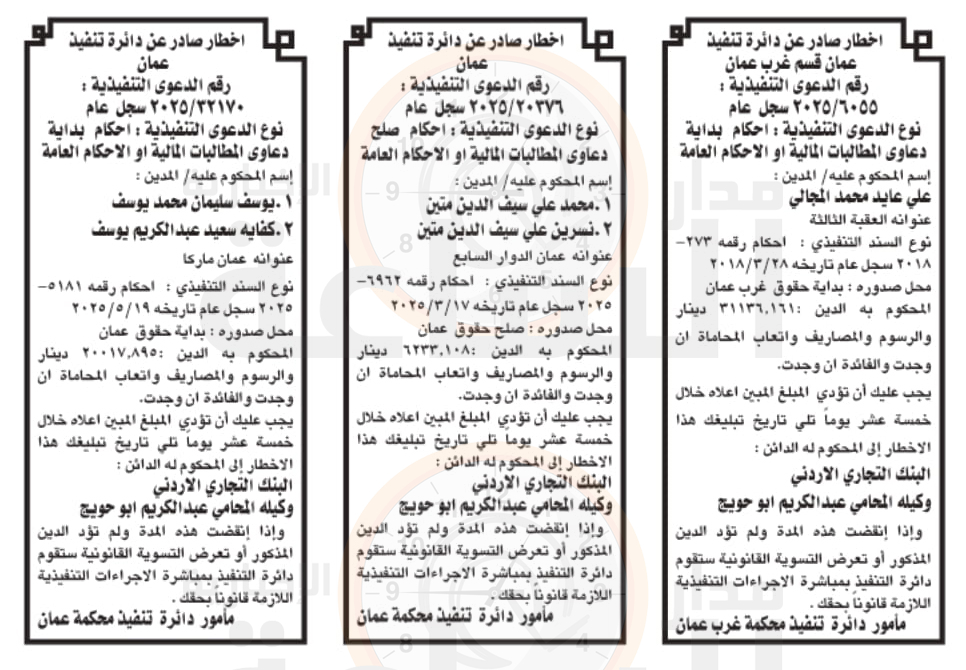 اخطار صادر عن دائرة تنفيذ
عمان قسم غرب عمان
رقم الدعوى التنفيذية :
٢٠٢٥/٦٠٥٥ سجل عام
نوع الدعوى التنفيذية : احكام بداية
دعاوى المطالبات المالية او الاحكام العامة
إسم المحكوم عليه/ المدين :
علي عايد محمد المجالي
عنوانه العقبة الثالثة
نوع السند التنفيذي : احكام رقمه ٢٧٣-
٢٠١٨ سجل عام تاريخه ٢٠١٨/٣/٢٨
محل صدوره : بداية حقوق غرب عمان
المحكوم به الدين :٣١١٣٦,١٦١ دينار
والرسوم والمصاريف واتعاب المحاماة ان
وجدت والفائدة ان وجدت.
يجب عليك أن تؤدي المبلغ المبين اعلاه خلال
خمسة عشر يوماً تلي تاريخ تبليغك هذا
الاخطار إلى المحكوم له الدائن :
البنك التجاري الاردني
وكيله المحامي عبدالكريم ابو حويج
وإذا إنقضت هذه المدة ولم تؤد الدين
المذكور أو تعرض التسوية القانونية ستقوم
دائرة التنفيذ بمباشرة الاجراءات التنفيذية
اللازمة قانوناً بحقك .
مأمور دائرة تنفيذ محكمة غرب عمان
اخطار صادر عن دائرة تنفيذ
عمان
رقم الدعوى التنفيذية :
٢٠٢٥/٢٠٣٧٦ سجل عام
نوع الدعوى التنفيذية : احكام صلح
دعاوى المطالبات المالية او الاحكام العامة
إسم المحكوم عليه/ المدين :
١ .محمد علي سيف الدين متين
٢ .نسرين علي سيف الدين متين
عنوانه عمان الدوار السابع
نوع السند التنفيذي : احكام رقمه ٦٩٦٢-
٢٠٢٥ سجل عام تاريخه ٢٠٢٥/٣/١٧
محل صدوره : صلح حقوق عمان
المحكوم به الدين :٦٢٣٣,١٠٨ دينار
والرسوم والمصاريف واتعاب المحاماة ان
وجدت والفائدة ان وجدت.
يجب عليك أن تؤدي المبلغ المبين اعلاه خلال
خمسة عشر يوماً تلي تاريخ تبليغك هذا
الاخطار إلى المحكوم له الدائن :
البنك التجاري الاردني
وكيله المحامي عبدالكريم ابو حويج
وإذا إنقضت هذه المدة ولم تؤد الدين
المذكور أو تعرض التسوية القانونية ستقوم
دائرة التنفيذ بمباشرة الاجراءات التنفيذية
اللازمة قانوناً بحقك .
مأمور دائرة تنفيذ محكمة عمان
اخطار صادر عن دائرة تنفيذ
عمان
رقم الدعوى التنفيذية :
٢٠٢٥/٣٢١٧٠ سجل عام
نوع الدعوى التنفيذية : احكام بداية
دعاوى المطالبات المالية او الاحكام العامة
إسم المحكوم عليه/ المدين :
١ .يوسف سليمان محمد يوسف
٢ .كفايه سعيد عبدالكريم يوسف
عنوانه عمان ماركا
نوع السند التنفيذي : احكام رقمه ٥١٨١-
٢٠٢٥ سجل عام تاريخه ٢٠٢٥/٥/١٩
محل صدوره : بداية حقوق عمان
المحكوم به الدين :٢٠٠١٧,٨٩٥ دينار
والرسوم والمصاريف واتعاب المحاماة ان
وجدت والفائدة ان وجدت.
يجب عليك أن تؤدي المبلغ المبين اعلاه خلال
خمسة عشر يوماً تلي تاريخ تبليغك هذا
الاخطار إلى المحكوم له الدائن :
البنك التجاري الاردني
وكيله المحامي عبدالكريم ابو حويج
وإذا إنقضت هذه المدة ولم تؤد الدين
المذكور أو تعرض التسوية القانونية ستقوم
دائرة التنفيذ بمباشرة الاجراءات التنفيذية
اللازمة قانوناً بحقك .
مأمور دائرة تنفيذ محكمة عمان